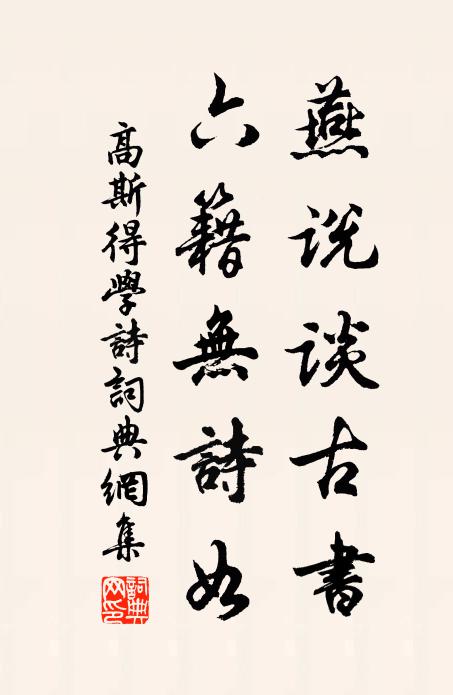 燕说談古書
六籍無詩如
高斯得學詩詞典網集
詞典網印